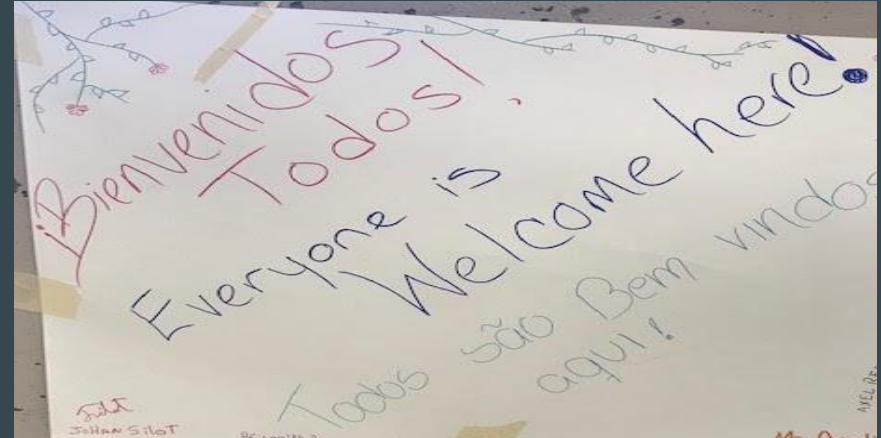 ¡Bienvenidos
Todos!
Everyone is
Welcome here!
Todos são Bem vindos
aqui!
JOHAN SiloT
AXEL